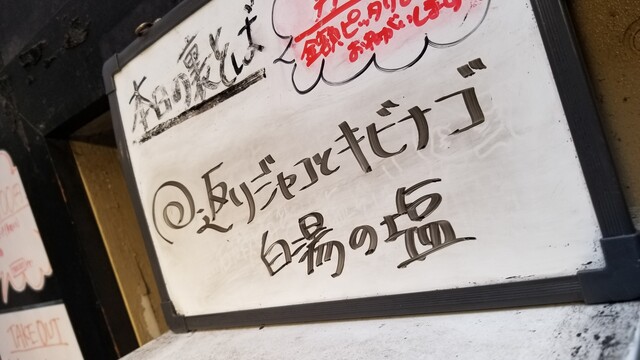 本日の裏とば
金額ピッタリで
お願いします
@返りジャコとキビナゴ
白湯の塩
TAKE OUT